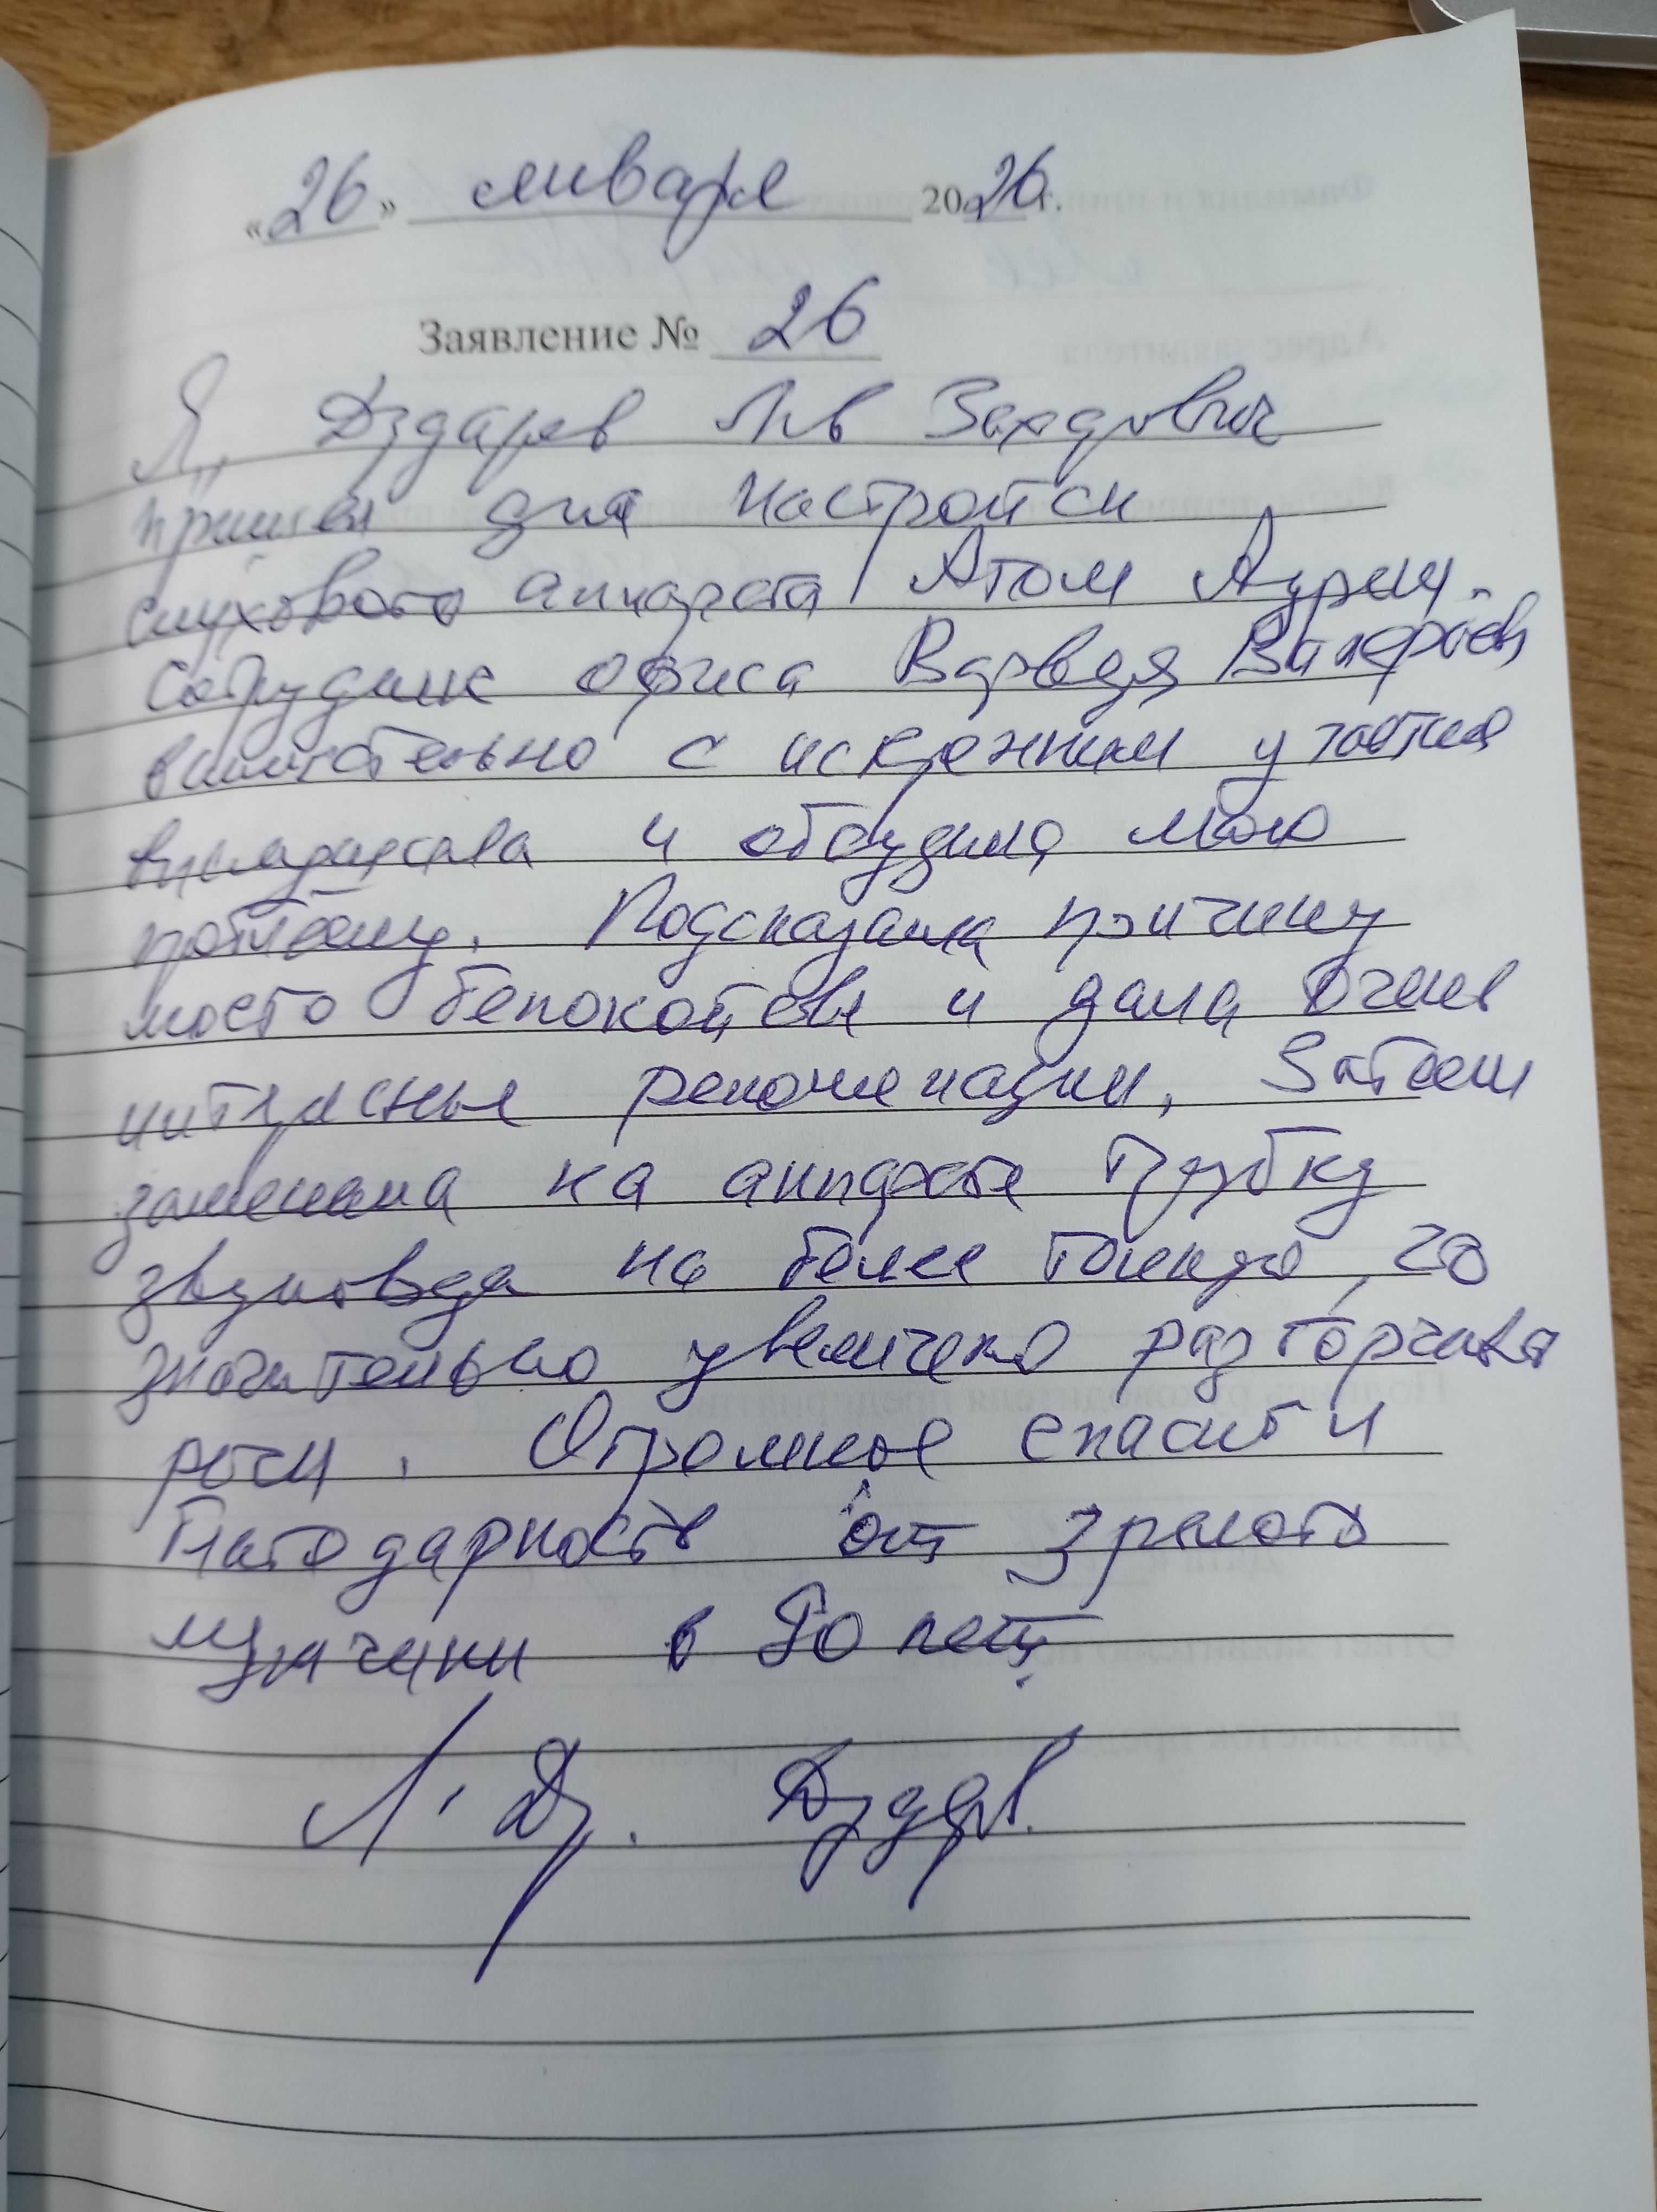 «26» января 2026 г.
Заявление № 26
Я, Дздарев Лев
пришел для настройки
слухового аппарата Атом Аурум.
Сотрудник офиса Варвара Валерьев
внимательно с искренним участием
выслушала и обсудила мою
проблему. Подсказала причину
моего беспокойства и дала очень
интересные рекомендации, Затем
заменила на аппарате трубку
звуковода на более тонкую, что
значительно увеличило разборчивость
речи. Огромное спасибо и
благодарность от зрелого
мужчины в 90 лет.
Л. Дз.